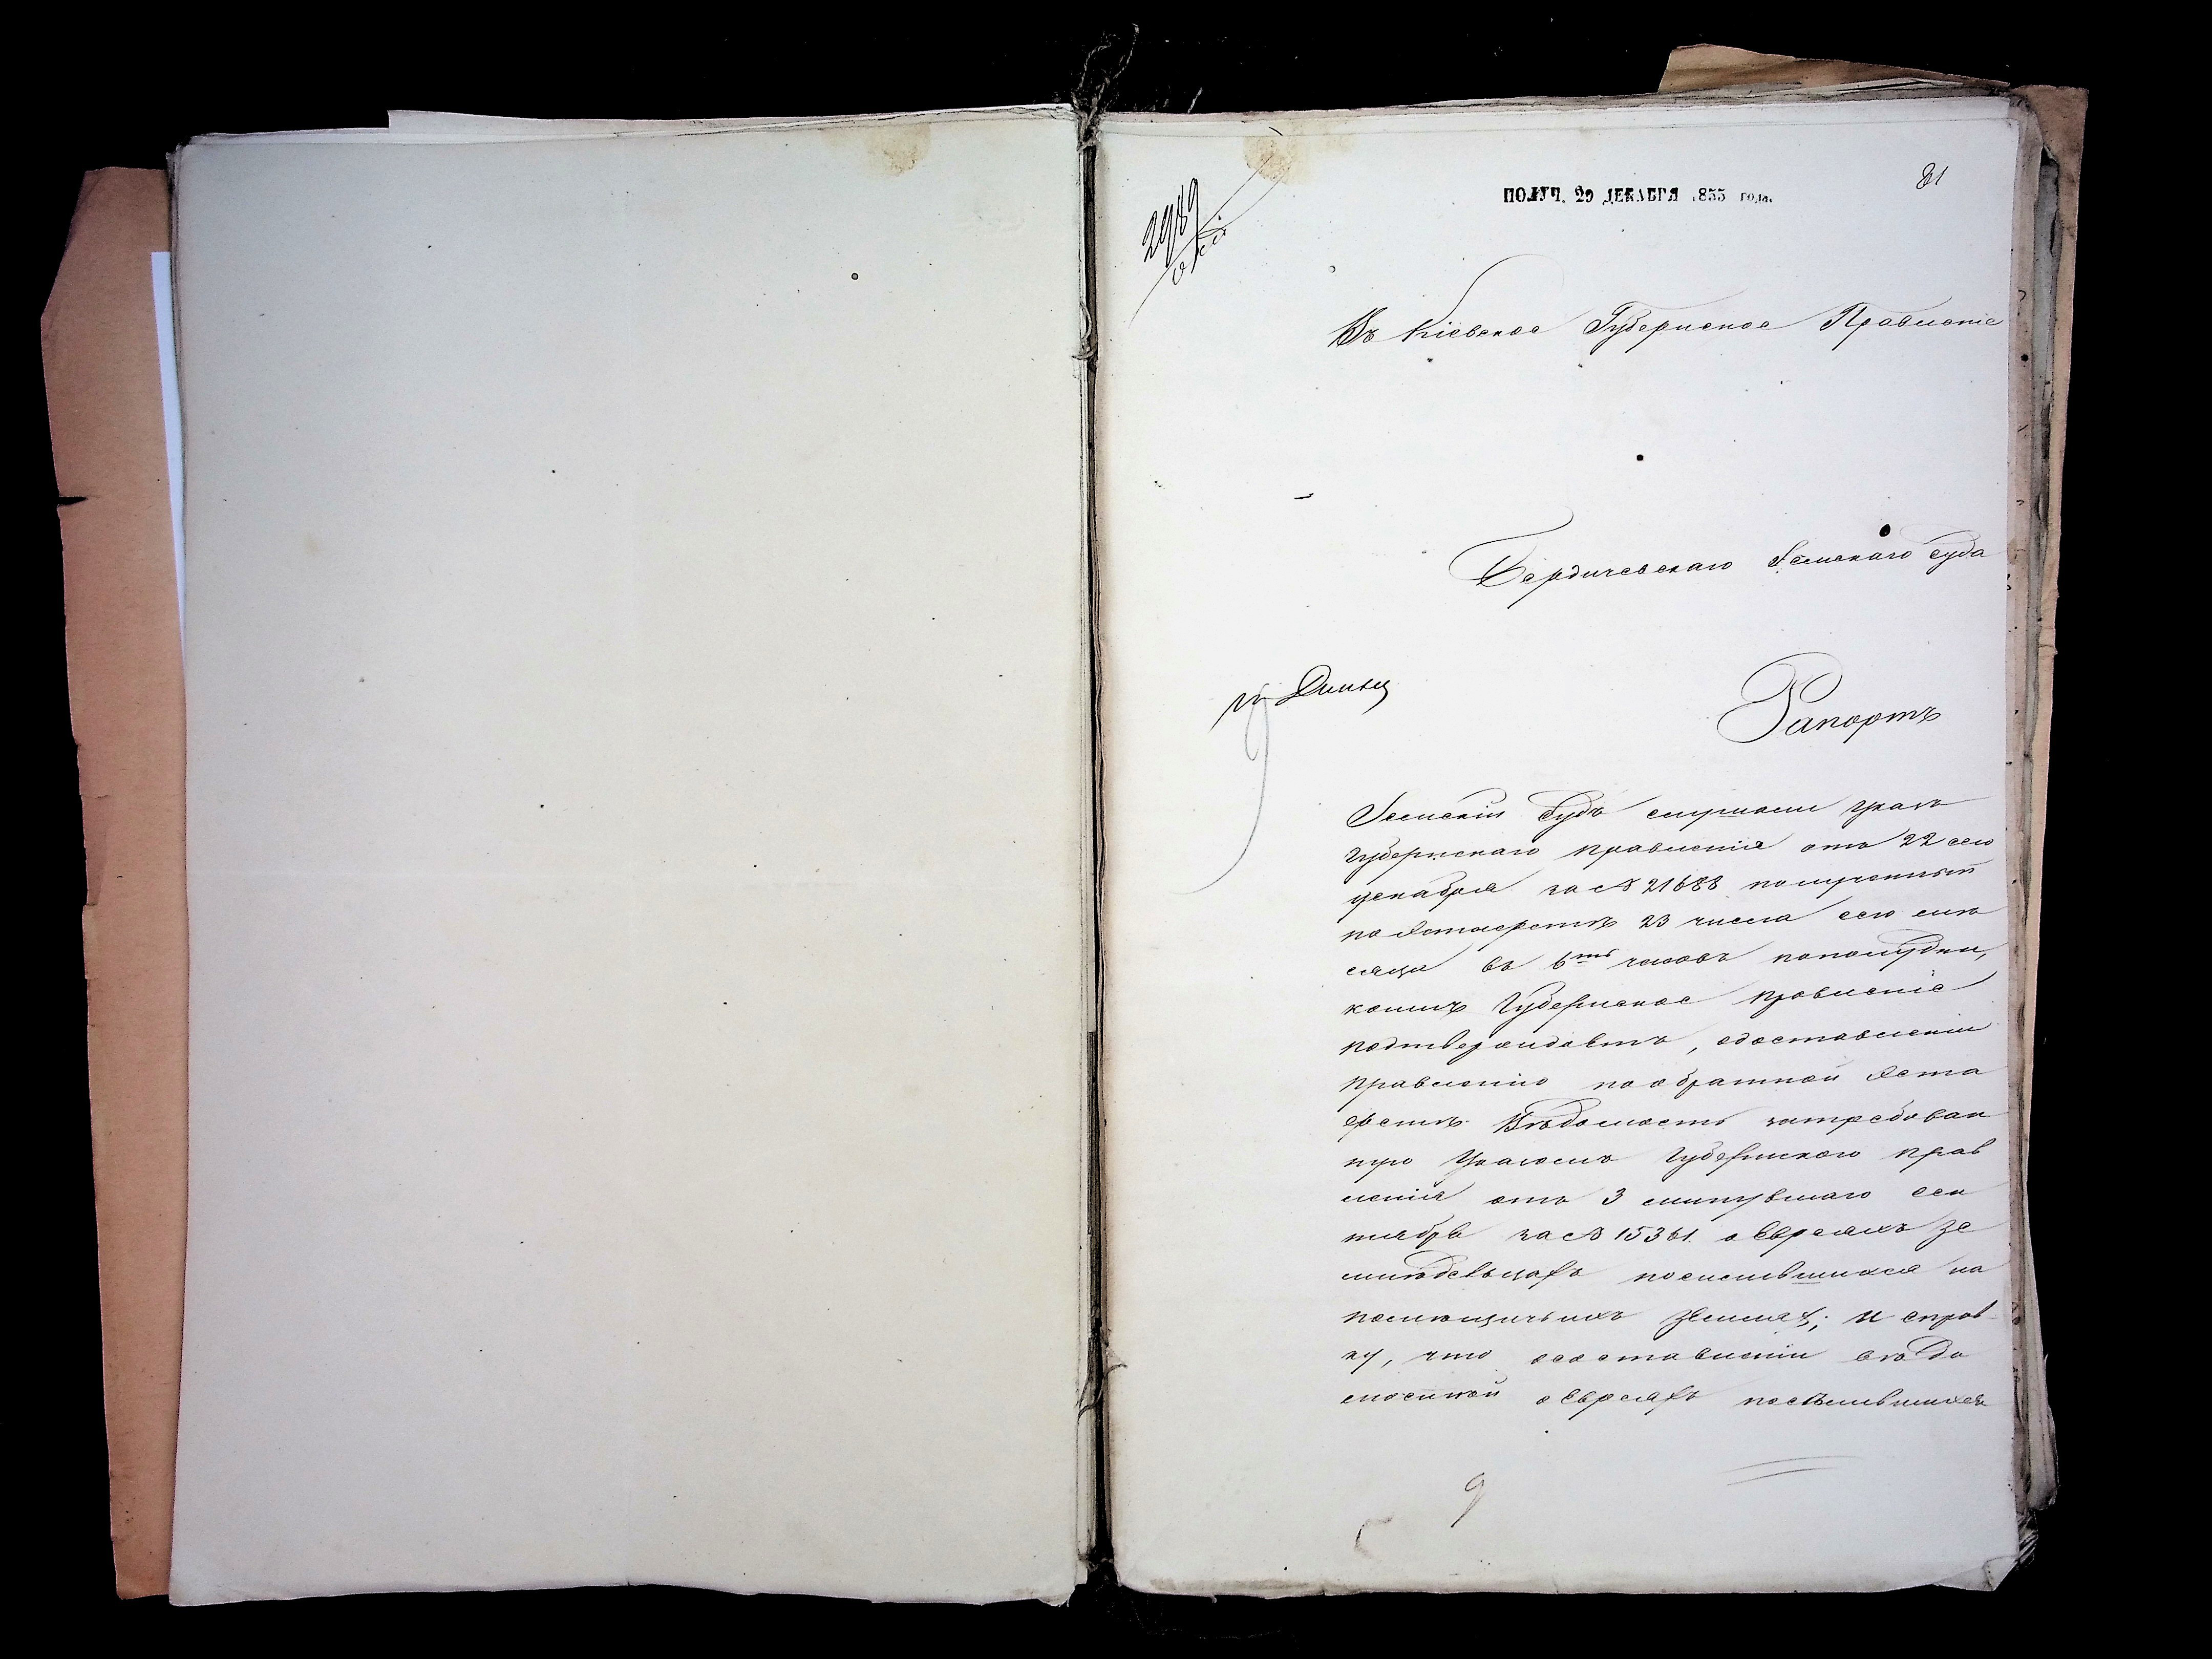 81
ПОЛУЧ. 29 ДЕКАБРЯ 1855 года.
2989
Въ Кіевское Губернское Правленіе
Бердичевскаго Земскаго Суда
Рапортъ
Земскій Судъ слушали Указъ
Губернскаго правленія отъ 22 сего
декабря за № 21688 полученный
по Эстафетѣ 23 числа сего мѣ
сяца въ 6ть часовъ пополудни,
коимъ Губернское правленіе
подтверждаетъ, одоставленіи
правленію пообратной Эста
фетѣ Вѣдомость затребован
ную Указомъ Губернскаго прав
ленія отъ 3 минувшаго сен
тября за № 15361. о Евреяхъ зе
мледѣльцахъ поселившихся на
помѣщичьихъ земляхъ; и справ-
ку, что осоставленіи вѣдо
мостей о Евреяхъ поселившихся
9